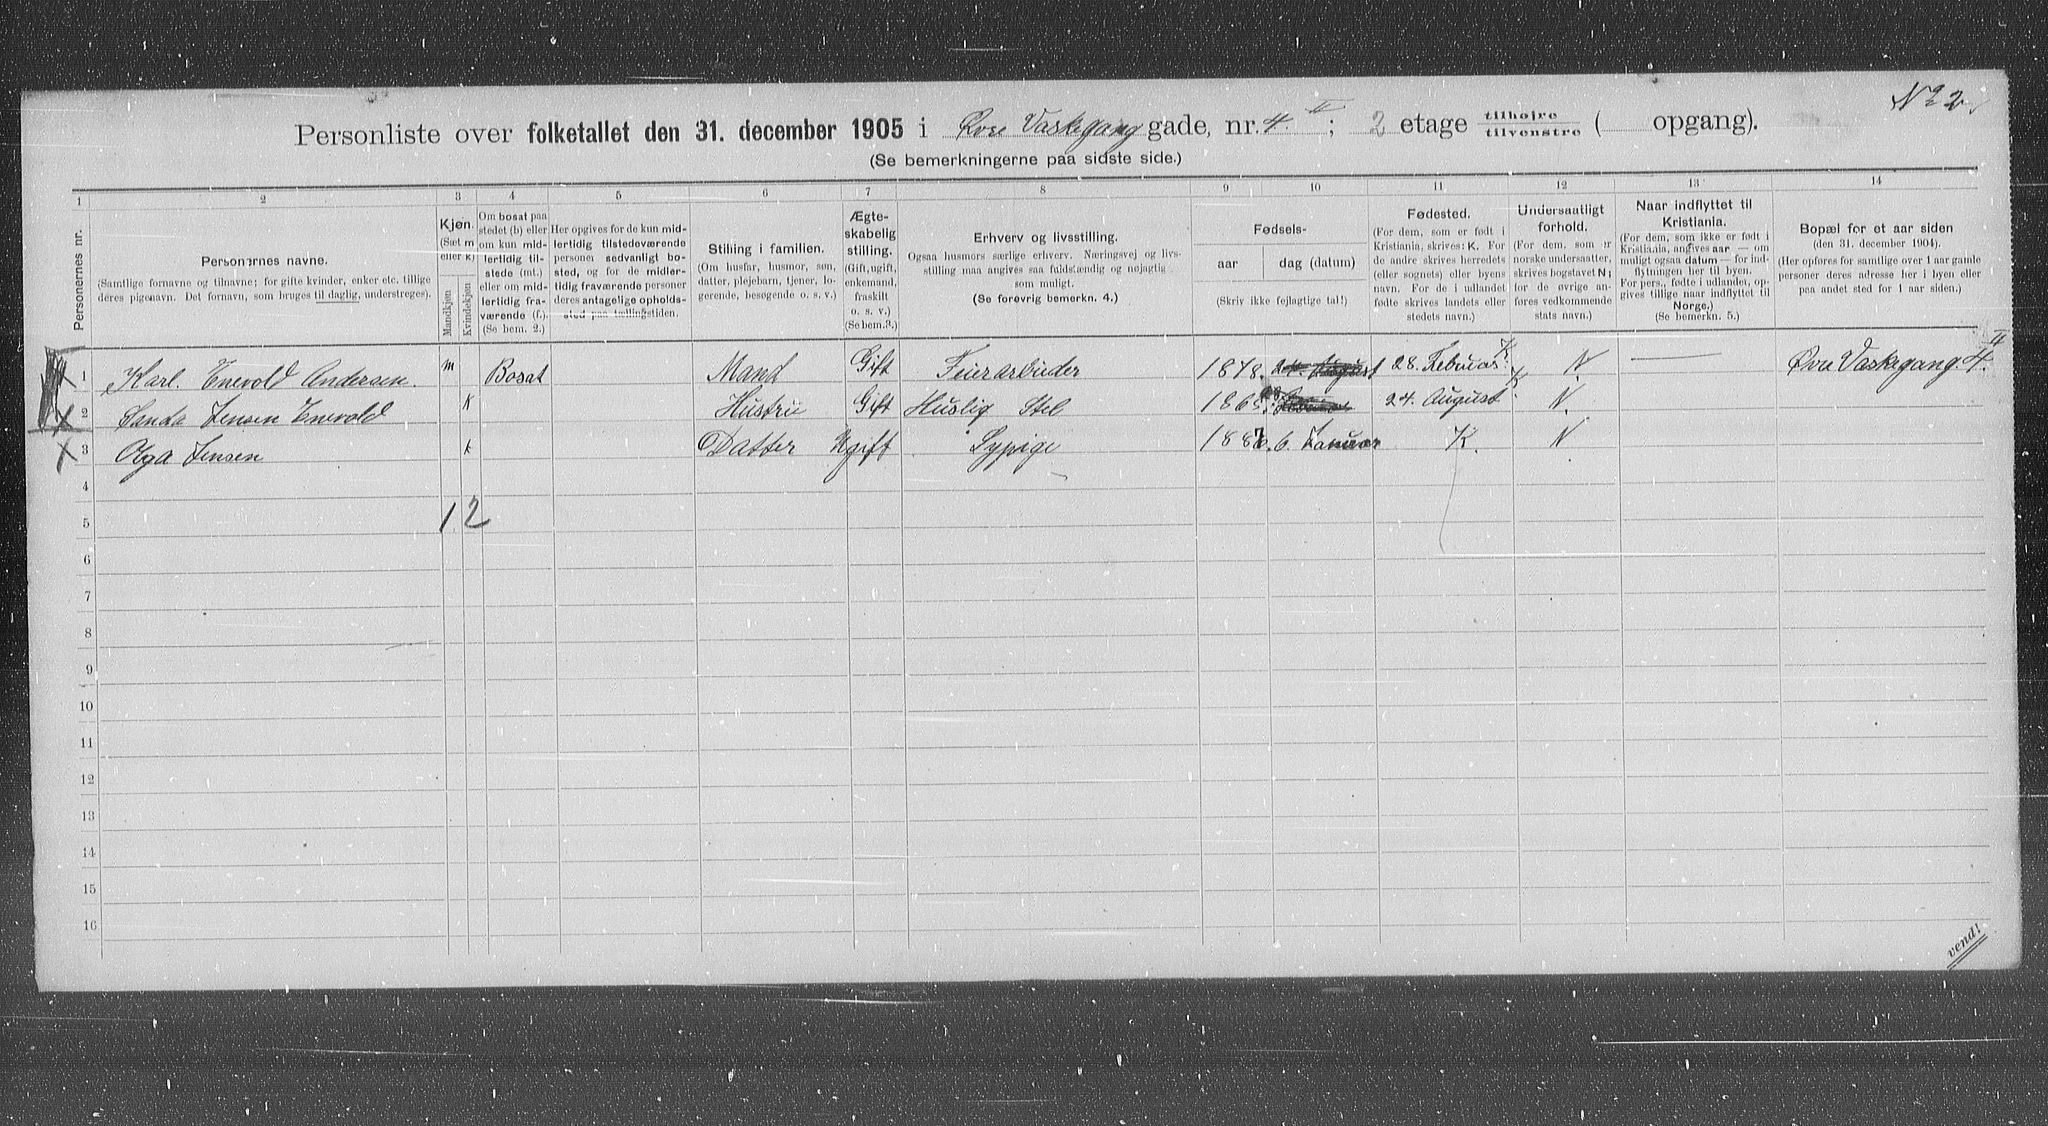 No 2.
Personliste over folketallet den 31. december 1905 i Øvre Vaskegang gade, nr. 4. II; 2 etage tilhøjre/tilvenstre ( opgang).
(Se bemerkningerne paa sidste side.)
1 2 3 4 5 6 7 8 9 10 11 12 13 14
Personernes nr.
Personernes navne.
(Samtlige fornavne og tilnavne; for gifte kvinder, enker etc. tillige
deres pigenavn. Det fornavn, som bruges til daglig, understreges).
Kjøn.
(Sæt m
eller k)
Mandkjøn
Kvindekjøn
Om bosat paa
stedet (b) eller
om kun mid-
lertidig til-
stede (mt.)
eller om mid-
lertidig fra-
værende (f.).
(Se bem. 2.)
Her opgives for de kun mid-
lertidig tilstedeværende
personer sedvanlig bo-
sted, og for de midler-
tidig fraværende personer
deres antagelige opholds-
sted paa tællingstiden.
Stilling i familien.
(Om husfar, husmor, søn,
datter, plejebarn, tjener, lo-
gerende, besøgende o. s. v.)
Ægte-
skabelig
stilling.
(Gift, ugift,
enkemand,
fraskilt
o. s. v.)
(Se bem. 3.)
Erhverv og livsstilling.
Ogsaa husmors særlige erhverv. Næringsvej og livs-
stilling maa angives saa fuldstændig og nøjagtig
som muligt.
(Se forøvrig bemerkn. 4.)
Fødsels-
aar
dag (datum)
(Skriv ikke fejlagtige tal!)
Fødested.
(For dem, som er født i
Kristiania, skrives: K. For
de andre skrives herredets
(eller sognets) eller byens
navn. For de i udlandet
fødte skrives landets eller
stedets navn.)
Undersaatligt
forhold.
(For dem, som er
norske undersaatter,
skrives bogstavet N;
for de øvrige an-
føres vedkommende
stats navn.)
Naar indflyttet til
Kristiania.
(For dem, som ikke er født i
Kristiania, angives aar — om
muligt ogsaa datum — for ind-
flytningen her til byen.
For pers., fødte i udlandet, op-
gives tillige naar indflyttet til
Norge.)
(Se bemerkn. 5.)
Bopæl for et aar siden
(den 31. december 1904).
(Her opføres for samtlige over 1 aar gamle
personer deres adresse her i byen eller
paa andet sted for 1 aar siden.)
1 Karl. Enevold Andersen. m Bosat Mand Gift Feierarbeider 1878. 28. Februar K. N. Øvre Vaskegang 4. II
2 Jensen Enevold K Hustru Gift Huslig Stel 24. August K. N.
3 Olga Jensen k Datter Ugift Sypige 6. Januar K. N
4
5 1 2
6
7
8
9
10
11
12
13
14
15
16
vend!